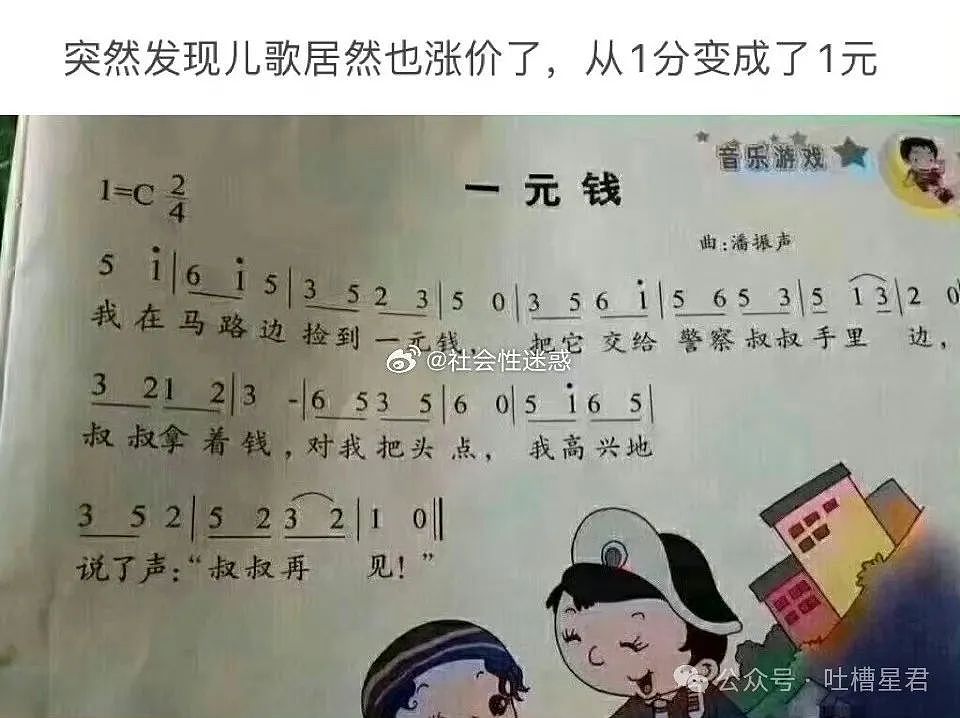 突然发现儿歌居然也涨价了，从1分变成了1元
音乐游戏
1=C 2/4
一元钱
曲:潘振声
5 i|6 i 5|3 5 2 3|5 0|3 5 6 i|5 6 5 3|5 1 3|2 0
我在马路边捡到一元钱，把它交给警察叔叔手里 边，
@社会性迷惑
3 2 1 2|3 -|6 5 3 5|6 0|5 i 6 5|
叔叔拿着钱，对我把头点，我高兴地
3 5 2|5 2 3 2|1 0‖
说了声:“叔叔再 见!”
公众号·吐槽星君